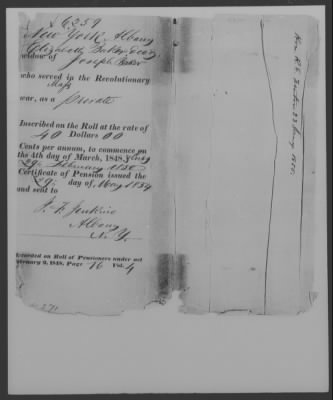 6259
New York, Albany
Elizabeth Baker, decd
widow of
Joseph Baker
who served in the Revolutionary
war, as a Private
Mass
Inscribed on the Roll at the rate of
40 Dollars 00
Cents per annum, to commence on
the 4th day of March, 1848,
29th February 1850
Certificate of Pension issued the
29th day of May 1854
and sent to
J. F. Jenkins
Albany
N. Y.
Recorded on Roll of Pensioners under act
February 2, 1848, Page 16 Vol. 4
Hon. R. S.